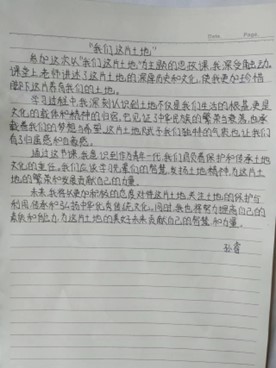 "我们这片土地"
参加这次以"我们这片土地"为主题的思政课,我深受触动。
课堂上,老师讲述了这片土地的深厚历史和文化,使我更加珍惜
脚下这片养育我们的土地。
学习过程中,我深刻认识到土地不仅是我们生活的根基,更是
文化的载体和精神的归宿。它见证了中华民族的繁荣与衰落,也承
载着我们的梦想与希望。这片土地赋予我们独特的气质,也让我们
有了归属感和自豪感。
通过这节课,我意识到作为青年一代,我们肩负着保护和传承土地
文化的重任。我们应该学习先辈们的智慧,发扬土地精神,为这片土
地的繁荣和发展贡献自己的力量。
未来,我将以更加积极的态度对待这片土地,关注土地的保护与
利用,传承和弘扬中华优秀传统文化。同时,我也将努力提高自己的
素质和能力,为这片土地的美好未来贡献自己的智慧和力量。
Date. Page.